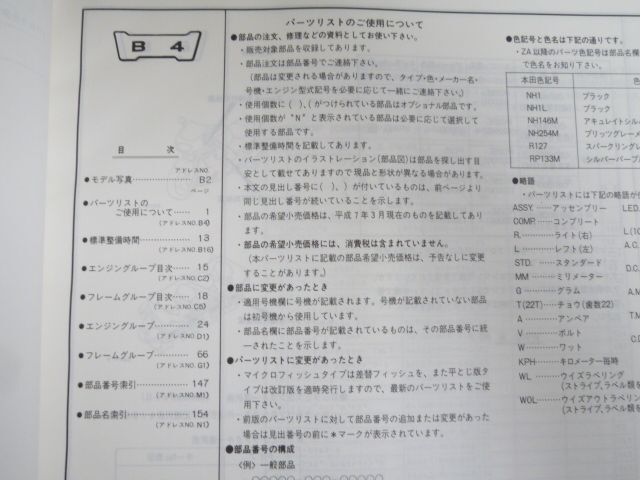 B 4
目 次
アドレスNO.
●モデル写真 B2
ページ
●パーツリストの
ご使用について 1
(アドレスNO.B4)
●標準整備時間 13
(アドレスNO.B16)
●エンジングループ目次 15
(アドレスNO.C2)
●フレームグループ目次 18
(アドレスNO.C5)
●エンジングループ 24
(アドレスNO.D1)
●フレームグループ 66
(アドレスNO.G1)
●部品番号索引 147
(アドレスNO.M1)
●部品名索引 154
(アドレスNO.N1)
パーツリストのご使用について
●部品の注文、修理などの資料としてお使い下さい。
・販売対象部品を収録してあります。
・部品注文は部品番号でご連絡下さい。
(部品は変更される場合がありますので、タイプ・色・メーカー名・
号機・エンジン型式記号を必要に応じて一緒にご連絡下さい。)
・使用個数に( )、( がつけられている部品はオプショナル部品です。
・使用個数が"N"と表示されている部品は必要に応じて選択して
使用する部品です。
・標準整備時間を記載してあります。
・パーツリストのイラストレーション(部品図)は部品を探し出す目
安として載せてありますので現品と形状が異なる場合があります。
・本文の見出し番号に( )、) が付いているものは、前ページより
同じ見出し番号が続いていることを示します。
・部品の希望小売価格は、平成7年3月現在のものを記載してあり
ます。
・部品の希望小売価格には、消費税は含まれていません。
(本パーツリストに記載の部品希望小売価格は、予告なしに変更
することがあります。)
●部品に変更があったとき
・適用号機欄に号機が記載されます。号機が記載されていない部品
は初号機から使用しています。
・部品名欄に部品番号が記載されているものは、その部品番号に統
一されたことを示します。
●パーツリストに変更があったとき
・マイクロフィッシュタイプは差替フィッシュを、また平とじ版タ
イプは改訂版を適時発行しますので、最新のパーツリストをご使
用下さい。
・前版のパーツリストに対して部品番号の追加または変更があった
場合は見出番号の前に＊マークが表示されています。
●部品番号の構成
〈例〉一般部品
●色記号と色名は下記の通りです。
・ZA以降のパーツ色記号は部品名欄
で色名をお知り下さい。
本田色記号 色
NH1 ブラック
NH1L ブラック
NH146M アキュレイトシル
NH254M ブリッツグレー
R127 スパークリング
RP133M シルバーパープ
●略語
・パーツリストには下記の略語が
ASSY. アッセンブリー LED.
COMP. コンプリート
R. ライト(右) L(10
L. レフト(左) A.C.
STD. スタンダード
MM ミリメーター D.C
G グラム A.M
T(22T) チョウ(歯数22)
A アンペア T.M
V ボルト
W ワット C.D
KPH キロメーター毎時
WL ウイズラベリング
(ストライプ、ラベル類を
WOL ウイズアウトラベリング
(ストライプ、ラベル類